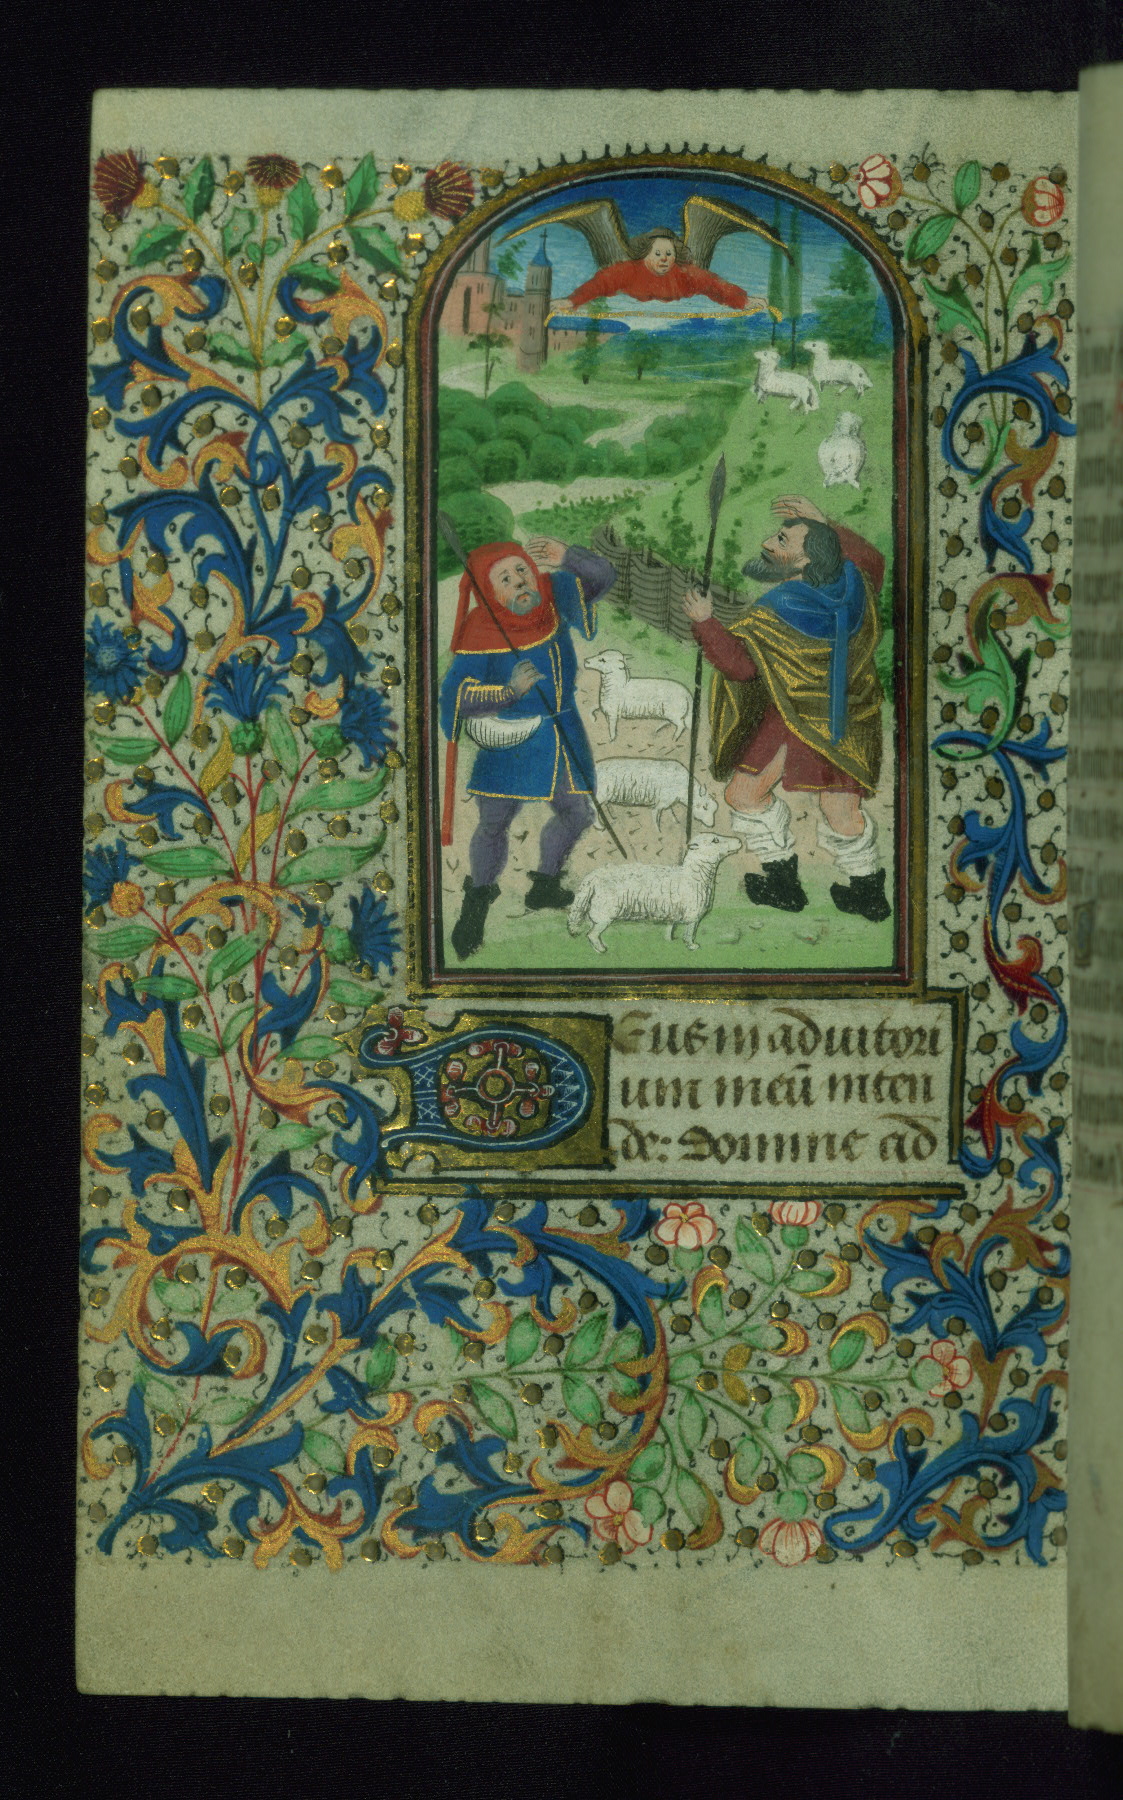 Deus in adiutori
um meū inten
de: Domine ad